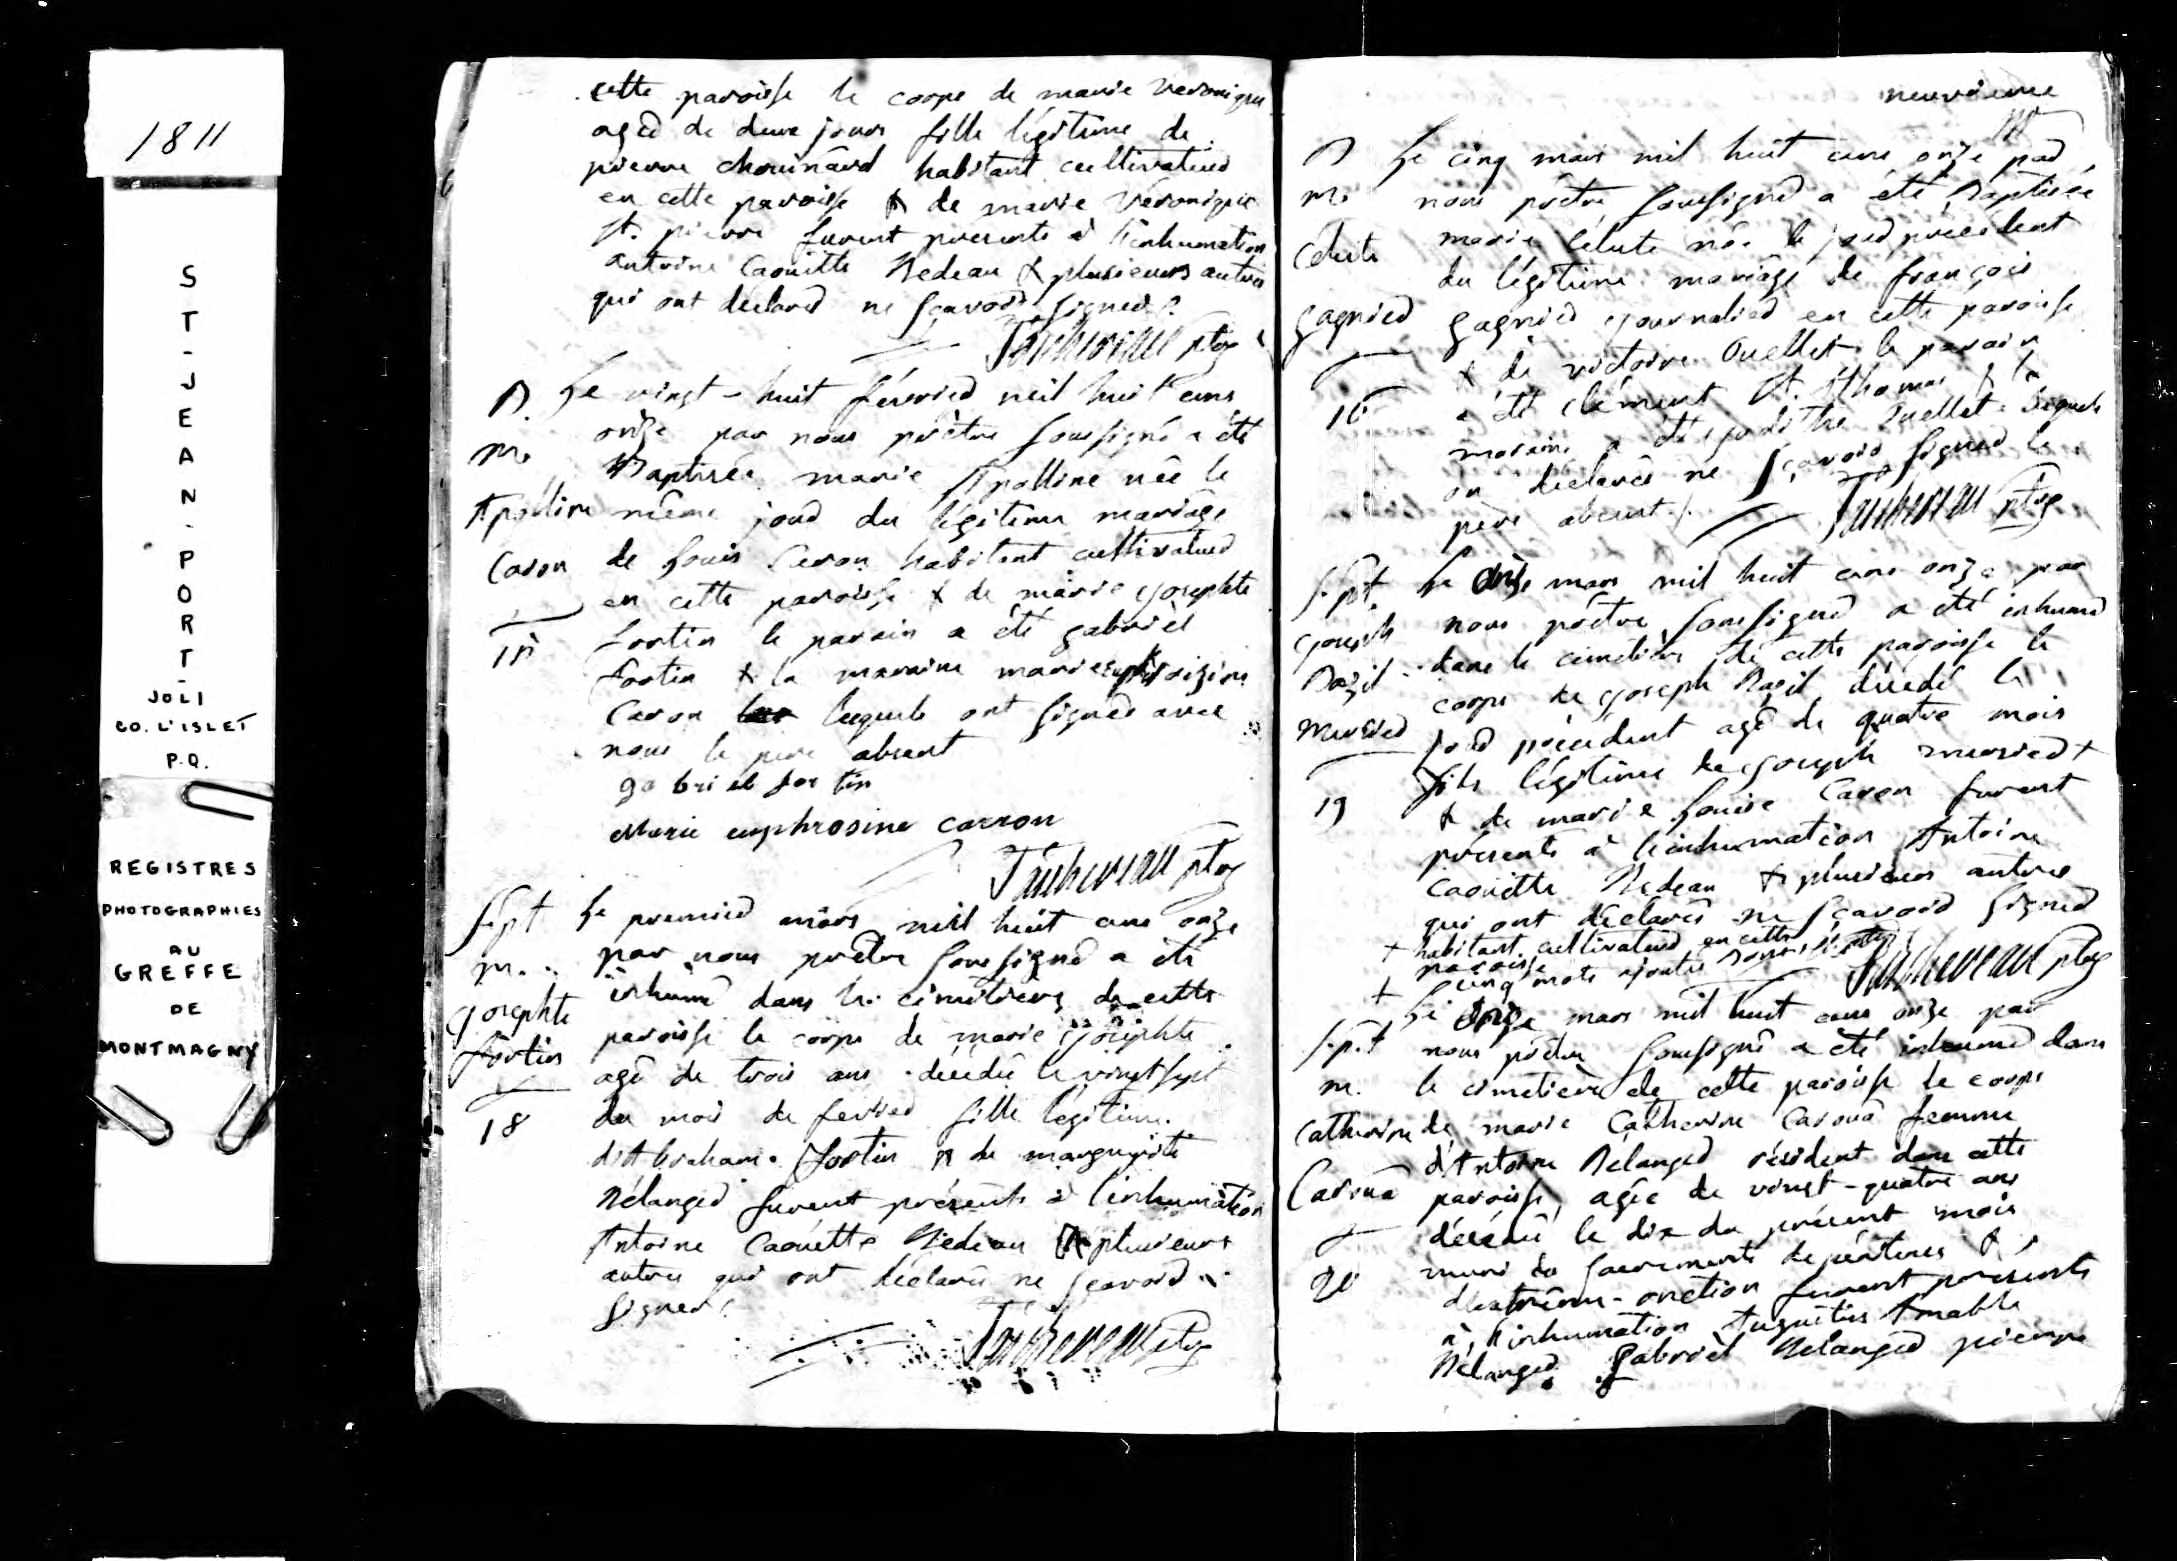 1811
ST-JEAN-PORT-
JOLI
CO. L'ISLET
P.Q.
REGISTRES
PHOTOGRAPHIES
AU
GREFFE
DE
MONTMAGNY
cette paroisse le corps de marie veronique
agé de deux jours fille légitime de
pierre chouinard habitant cultivateur
en cette paroisse & de marie Veronique
St. pierre furent presents à l'inhumation
Antoine Caouitte Bedeau & plusieurs autres
qui ont déclaré ne sçavoir signer
Faucheveau ptre
B. Le vingt-huit février mil huit cens
onze par nous prêtre soussigné a été
m. Baptisée marie Apolline née le
Apolline même jour du légitime mariage
Caron de Louis Caron habitant cultivateur
en cette paroisse & de marie Josephte
fortin le parain a été gabriel
fortin & la maraine marie
Caron lesquels ont signés avec
nous le pere absent
gabriel fortin
Marie euphrosine carron
ptre
Sept Le premier mars mil huit cens onze
m. par nous prêtre soussigné a été
inhumé dans le cimétiere de cette
Josephte paroisse le corps de marie Josephte
fortin agé de trois ans décédé le vingt sept
18 du mois de fevrier fille légitime
d'Abraham fortin & de marguerite
Bélanger furent présents à l'inhumation
Antoine Caouette Bedeau & plusieurs
autres qui ont déclaré ne sçavoir
signer
ptre
neuvieme
B Le cinq mars mil huit cens onze par
m. nous prêtre soussigné a été Baptisée
Celeste marie Celeste née le jour précédent
du légitime mariage de françois
gagnier gagnier journalier en cette paroisse
& de victoire Ouellet le parain
16 a été clément St. Thomas & la
maraine a été Ouellet lesquels
on déclarés ne sçavoir signer le
père absent
ptre
Sept Le onze mars mil huit cens onze par
Joseph nous prêtre soussigné a été inhumé
Bazil dans le cimetiere de cette paroisse le
corps de Joseph Bazil décedé le
mercier jour précédent agé de quatre mois
fils légitime de Joseph mercier +
19 & de marie Louise Caron furent
présents à l'inhumation Antoine
Caouitte Bedeau & plusieurs autres
qui ont déclarés ne sçavoir signer
+ habitant cultivateur en cette
paroisse
+ cinq mots ajoutés
ptre
Le onze mars mil huit cens onze par
Sept nous prêtre soussigné a été inhumé dans
m. le cimetiere de cette paroisse le corps
Catherine de marie Catherine Caroua femme
d'Antoine Belanger résident dans cette
Caroua paroisse, agée de vingt-quatre ans
décédé le dix du présent mois
20 muni des sacrements de pénitence &
d'extrême-onction furent présents
à l'inhumation Augustin Amable
Bélanger Gabriel Belanger pierre